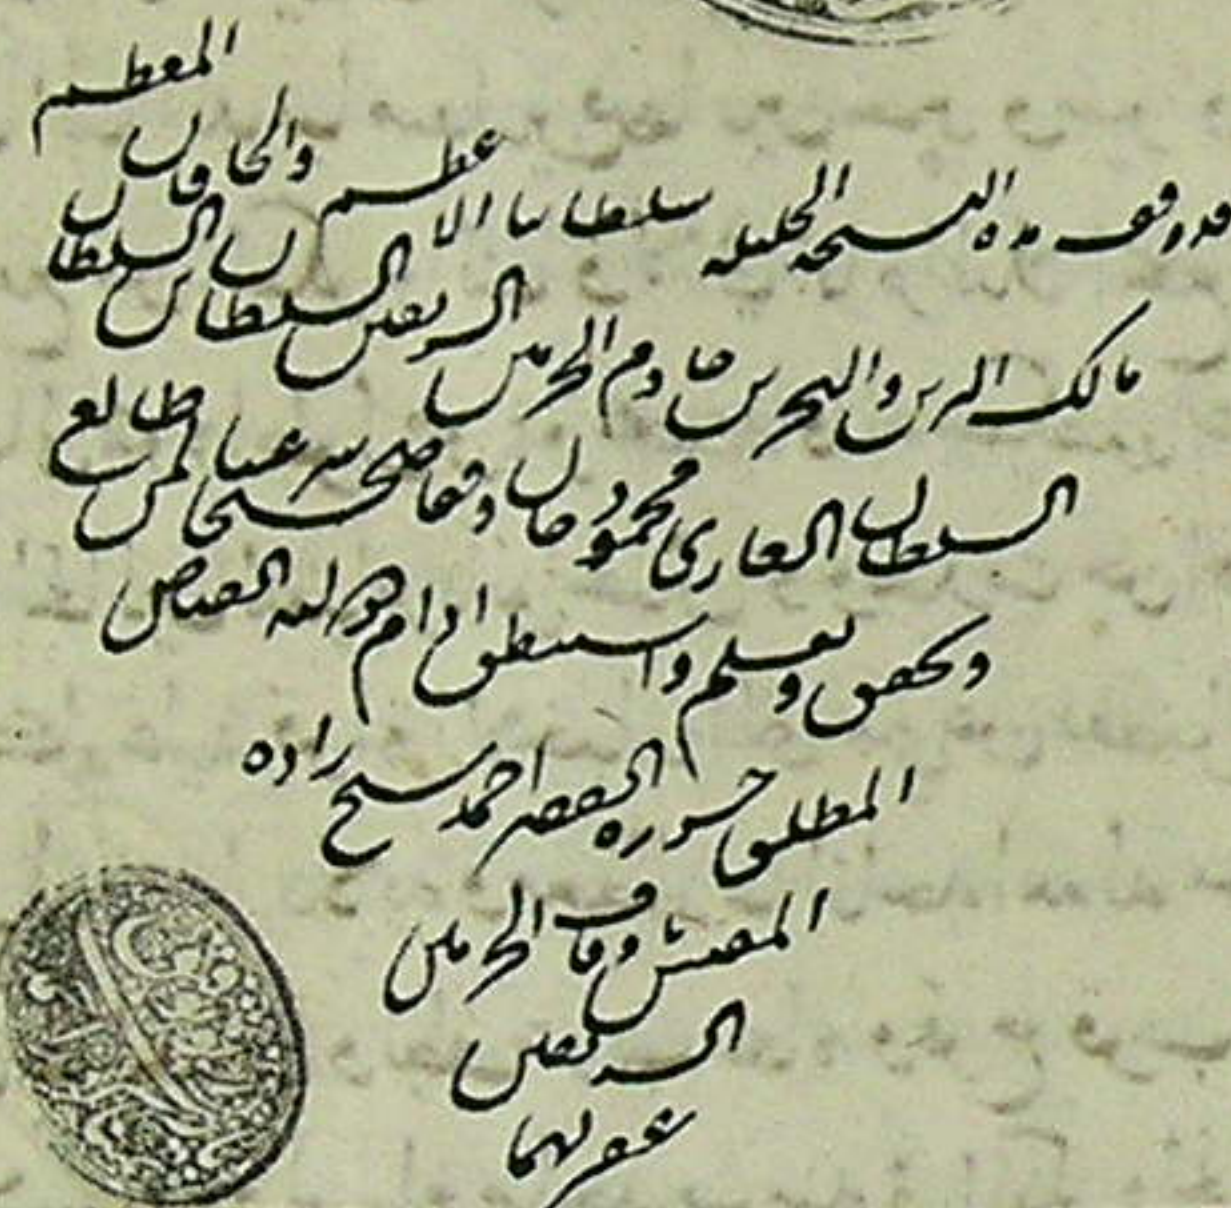 قد وقف هذه النسخة الجليلة سلطاننا الاعظم والخاقان المعظم
مالك البرين والبحرين خادم الحرمين الشريفين السلطان بن السلطان
السلطان الغازى محمود خان وقفا صحيحا شرعيا لمن طالع
وتحقق وتعلم واستنطق ادام الله الفياض
المطلق حرره الفقير احمد شيخ زاده
المفتش باوقاف الحرمين
الشريفين
غفر لهما